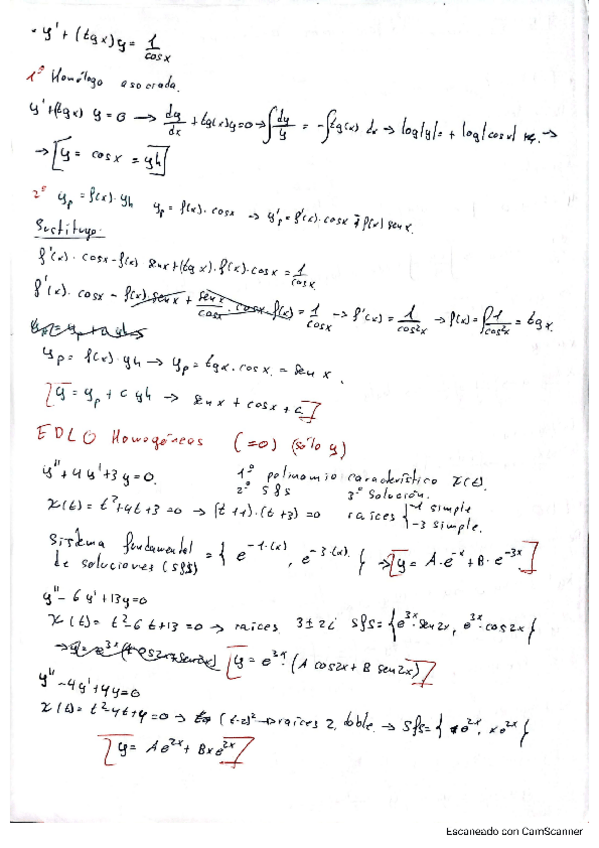 · y' + (tg x) y = 1/cos x
1º Homóloga asociada.
y' + (tg x) y = 0 → dy/dx + tg(x) y = 0 → ∫ dy/y = -∫ tg(x) dx → log|y| = + log|cos x| →
→ [y = cos x = yh]
2º yp = f(x)·yh yp = f(x)·cos x → y'p = f'(x)·cos x - f(x) sen x.
Sustituyo.
f'(x)·cos x - f(x) sen x + (tg x)·f(x)·cos x = 1/cos x
f'(x)·cos x - f(x) sen x + sen x/cos x · cos x f(x) = 1/cos x → f'(x) = 1/cos²x → f(x) = ∫ 1/cos²x = tg x.
yp = f(x)·yh → yp = tg x · cos x = sen x.
[y = yp + c yh → sen x + cos x + c]
EDLO Homogéneas (=0) (sólo y)
y'' + 4y' + 3y = 0. 1º polinomio característico X(t).
2º sfs 3º solución.
X(t) = t² + 4t + 3 = 0 → (t+1)·(t+3) = 0 raíces { -1 simple
-3 simple.
Sistema fundamental
de soluciones (sfs) = { e^-1·(x), e^-3·(x) } → [y = A·e^-x + B·e^-3x]
y'' - 6y' + 13y = 0
X(t) = t² - 6t + 13 = 0 → raíces 3 ± 2i sfs = { e^3x·sen 2x, e^3x·cos 2x }
[y = e^3x·(A cos 2x + B sen 2x)]
y'' - 4y' + 4y = 0
X(t) = t² - 4t + 4 = 0 → (t-2)² → raíces 2, doble → sfs = { e^2x, x e^2x }
[y = A e^2x + B x e^2x]
Escaneado con CamScanner